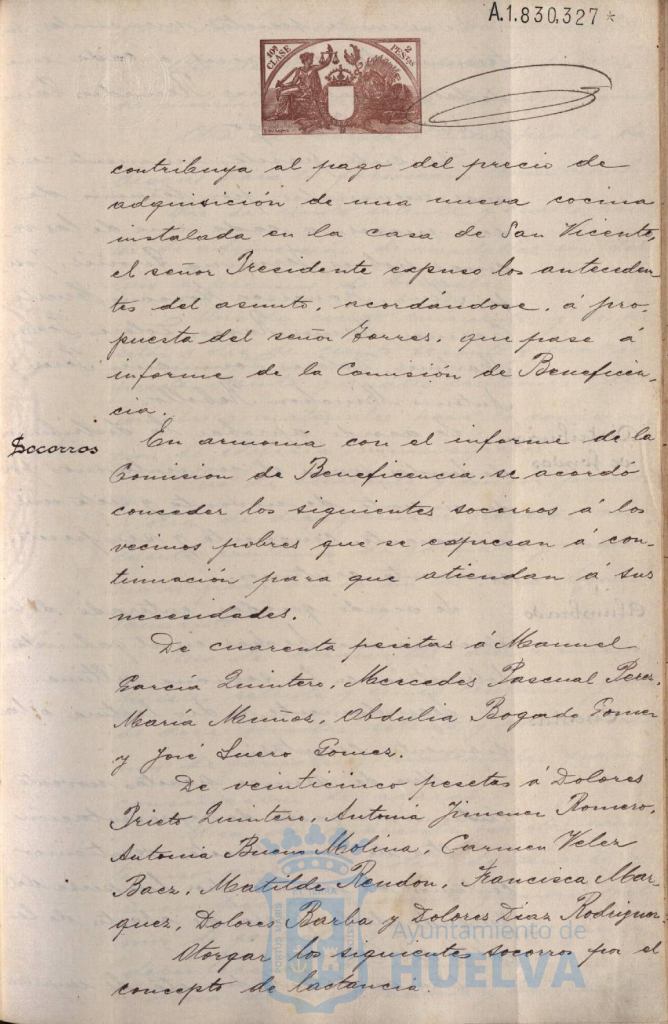 A.1.830,327 *
10ª CLASE 2 PESETAS
contribuya al pago del precio de
adquisición de una nueva cocina
instalada en la casa de San Vicente,
el señor Presidente expuso los anteceden-
tes del asunto, acordándose, á pro-
puesta del señor Torres, que pase á
informe de la Comisión de Beneficen-
cia.
Socorros
En armonía con el informe de la
Comision de Beneficencia, se acordó
conceder los siguientes socorros á los
vecinos pobres que se expresan á con-
tinuación para que atiendan á sus
necesidades.
De cuarenta pesetas á Manuel
García Quintero, Mercedes Pascual Perez,
María Muñoz, Obdulia Bogado Gomez
y José Suero Gomez.
De veinticinco pesetas á Dolores
Prieto Quintero, Antonia Jimenez Romero,
Antonia Bueno Molina, Carmen Velez
Baez, Matilde Rendon, Francisca Mar-
quez, Dolores Barba y Dolores Diaz Rodriguez.
Otorgar los siguientes socorros por el
concepto de lactancia.
Ayuntamiento de
HUELVA